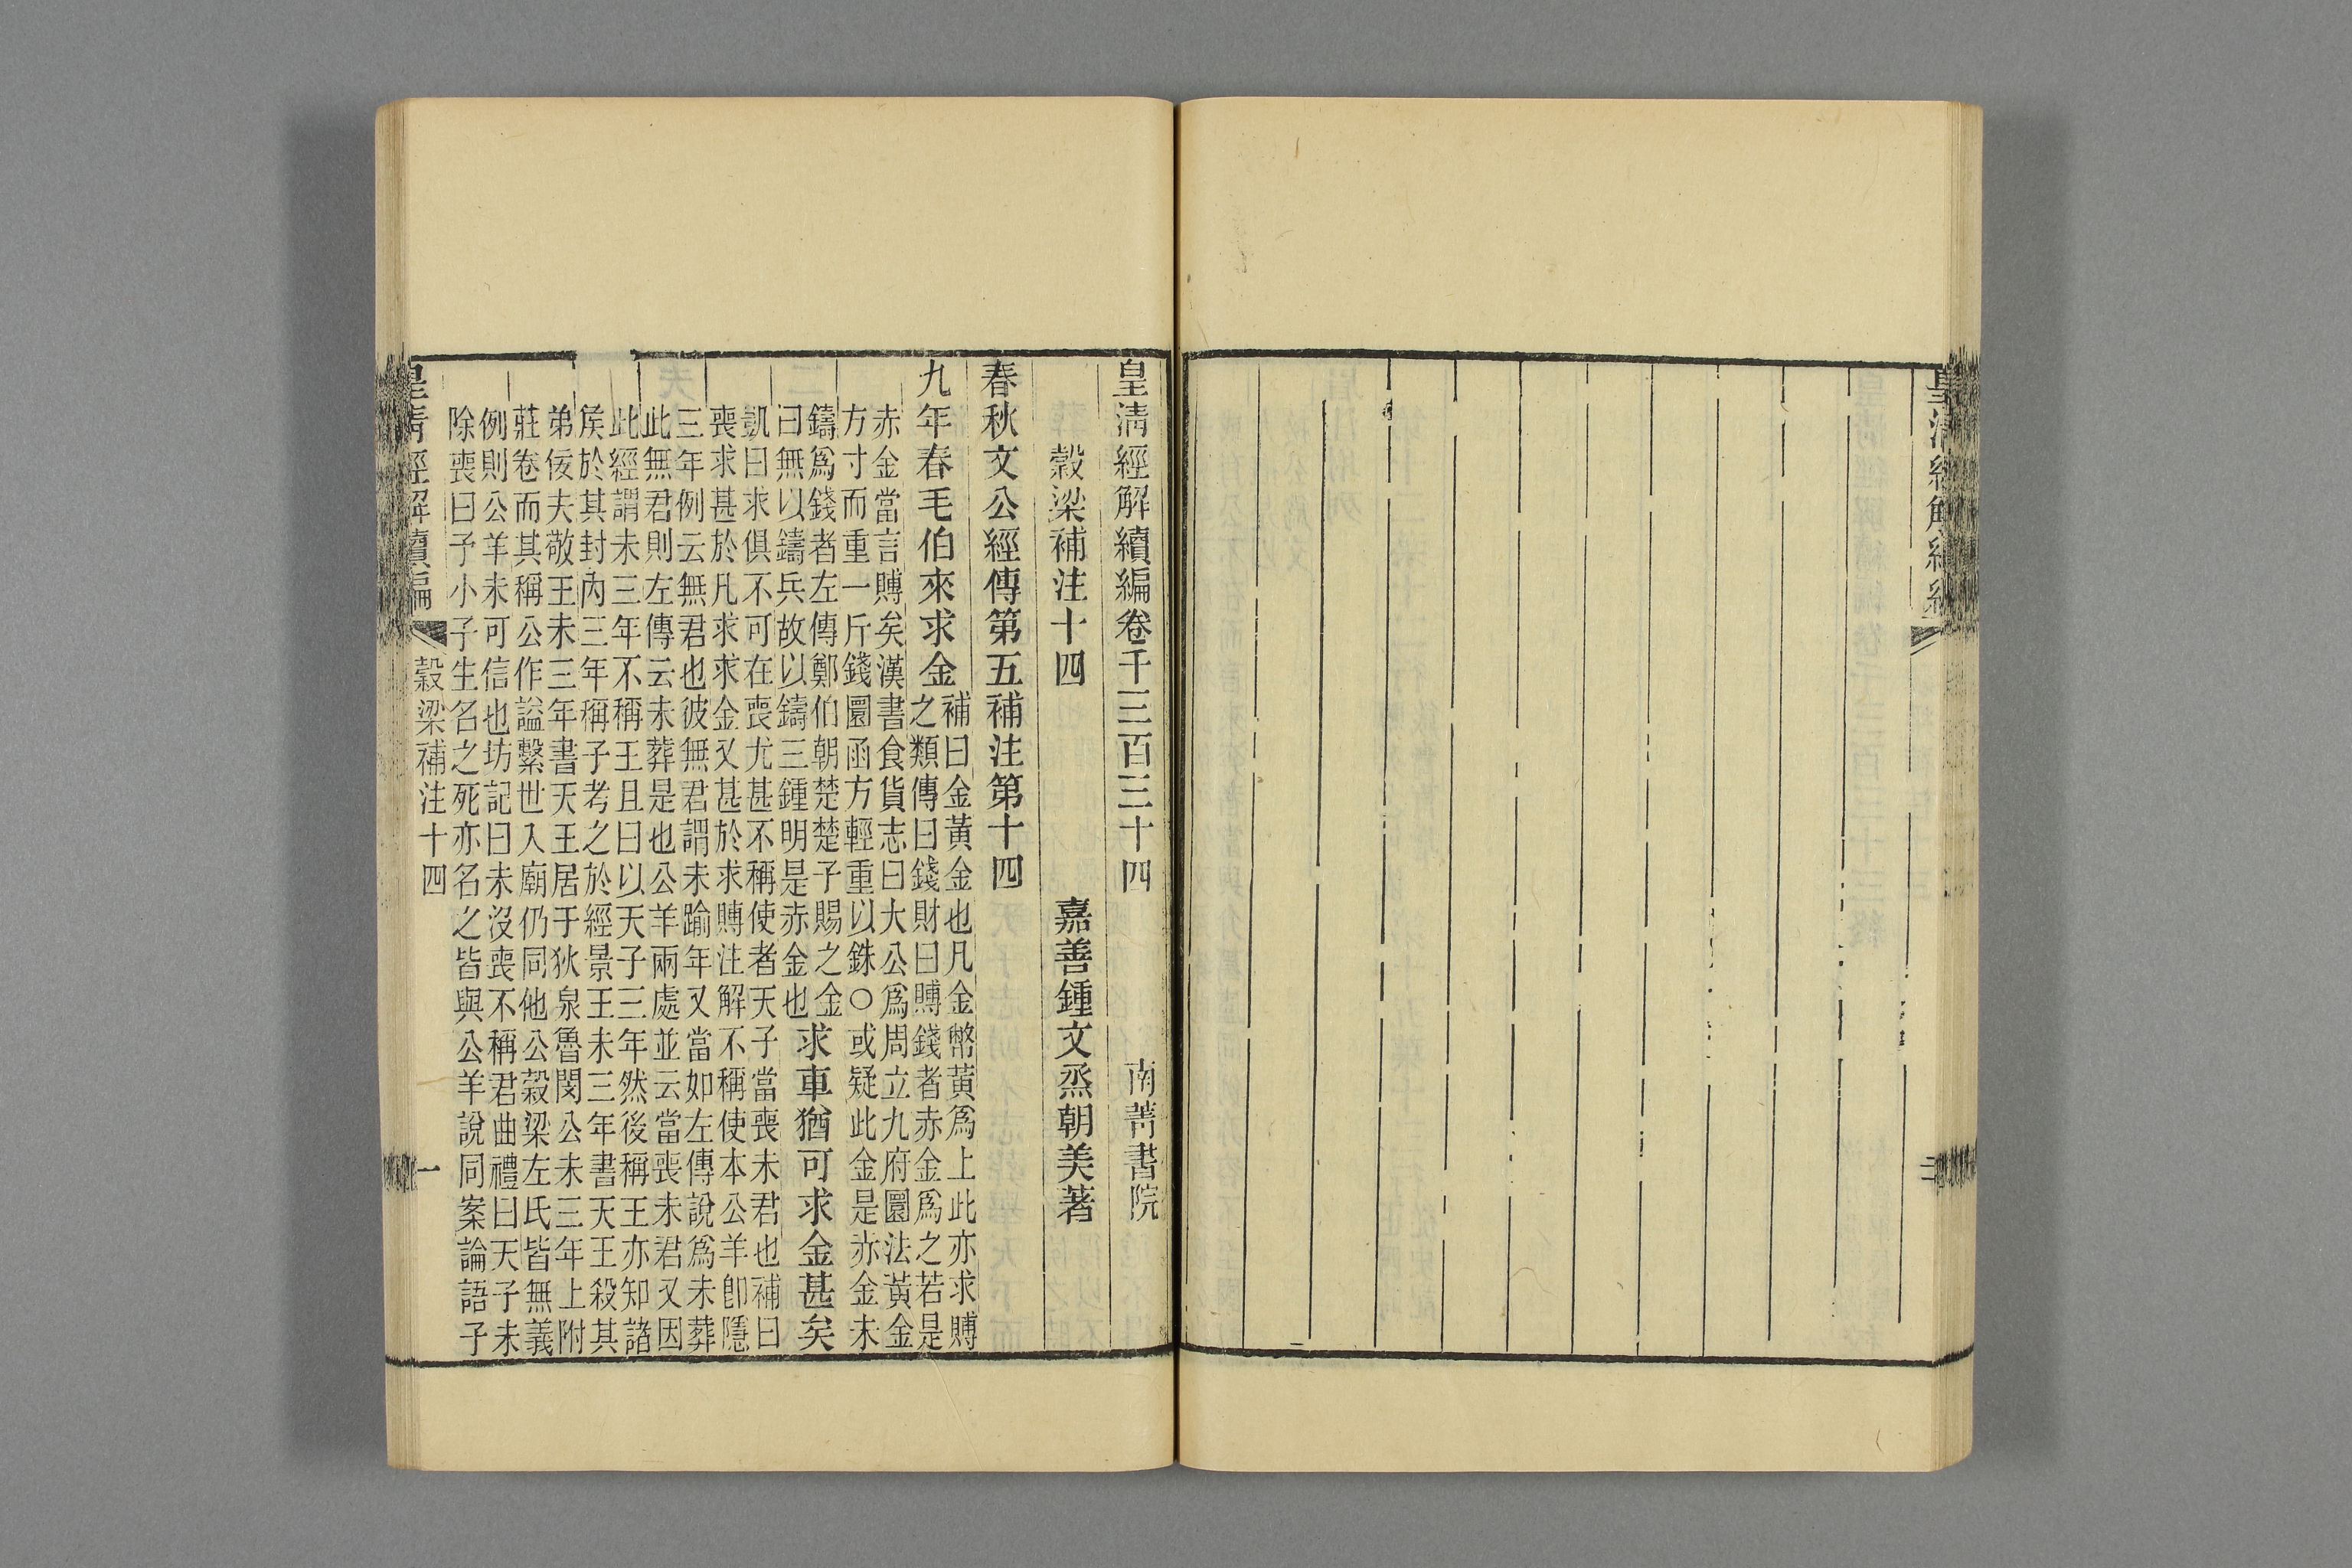 皇清經解續編卷千三百三十四
南菁書院
穀梁補注十四
嘉善鍾文烝朝美著
春秋文公經傳第五補注第十四
九年春毛伯來求金
補曰金黃金也凡金幣黃爲上此亦求賻
之類傳曰錢財曰賻錢者赤金爲之若是
赤金當言賻矣漢書食貨志曰大公爲周立九府圜法黃金
方寸而重一斤錢圜函方輕重以銖○或疑此金是赤金未
鑄爲錢者左傳鄭伯朝楚楚子賜之金
曰無以鑄兵故以鑄三鍾明是赤金也
求車猶可求金甚矣
凱曰求俱不可在喪尤甚不稱使者天子當喪未君也補曰
喪求甚於凡求求金又甚於求賻注解不稱使本公羊卽隱
三年例云無君也彼無君謂未踰年又當如左傳說爲未葬
此無君則左傳云未葬是也公羊兩處並云當喪未君又因
此經謂未三年不稱王且曰以天子三年然後稱王亦知諸
矦於其封內三年稱子考之於經景王未三年書天王殺其
弟佞夫敬王未三年書天王居于狄泉魯閔公未三年上附
莊卷而其稱公作謚繫世入廟仍同他公穀梁左氏皆無義
例則公羊未可信也坊記曰未沒喪不稱君曲禮曰天子未
除喪曰予小子生名之死亦名之皆與公羊說同案論語子
皇清經解續編
穀梁補注十四
一
皇清經解續編